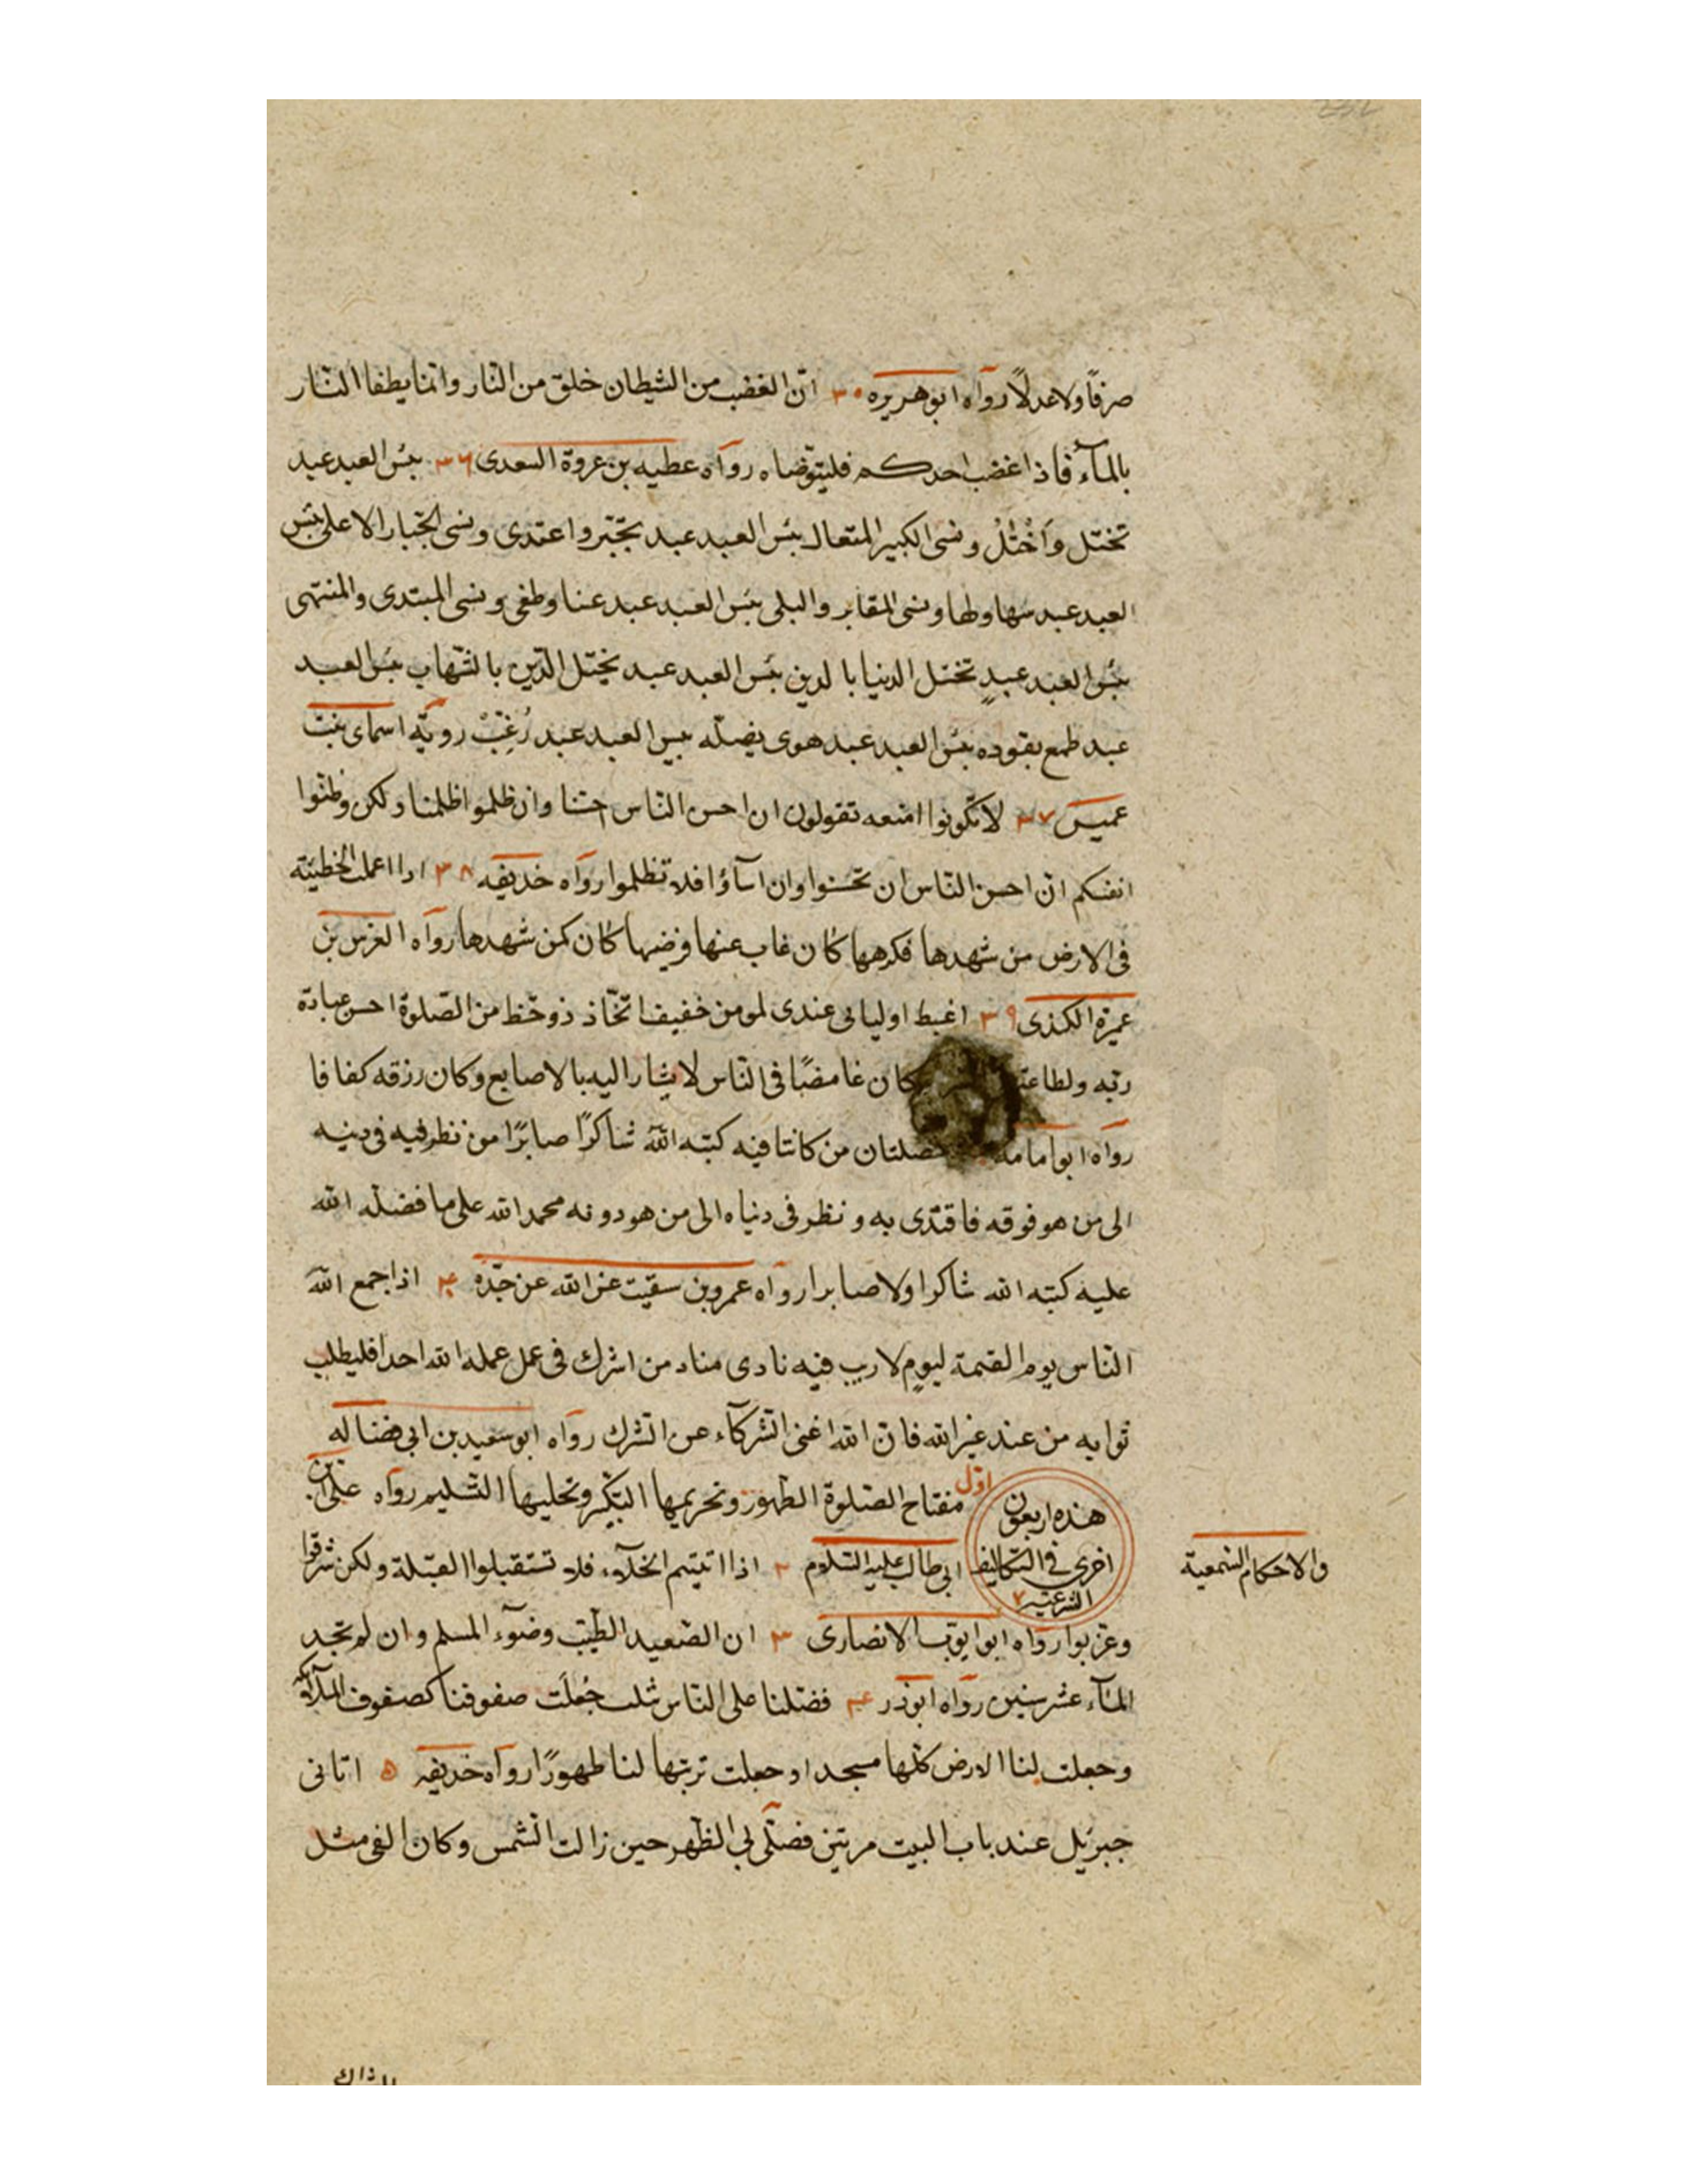 صرفًا ولا عدلًا رواه ابو هريره ٣٥ انّ الغضب من الشيطان خلق من النار وانما يطفا النار
بالمآء فاذا غضب احدكم فليتوّضاه رواه عطيه بن عروة السعدى ٣٦ بئس العبد عبد
تختل وَاَخْتَلْ ونسى الكبير المتعال بئس العبد عبد تجبّر واعتدى ونسى الجبّار الاعلى بئس
العبد عبد سها ولها ونسى المقابر والبلى بئس العبد عبد عنا وطغى ونسى المبتدى والمنتهى
بئس العبد عبدٍ تختل الدنيا بالدين بئس العبد عبد يختل الدّين بالشّهاب بئس العبد
عبد طمع يقوده بئس العبد عبد هوى يضلّه بيس العبد عبد رُغِبْ رويّه اسماى بنت
عميس ٣٧ لا تكونوا امنعه تقولون ان احسن النّاس احسنا وان ظلموا ظلمنا ولكن وظنوا
انفسكم ان احسن النّاس ان تحسنوا وان اسآؤا فلا تظلموا رواه خديفه ٣٨ اذا اعملت الخطيئة
فى الارض من شهدها فكرهها كان غاب عنها فرضيها كان كمن شهدها رواه العرس بن
عميرة الكندى ٣٩ اغبط اوليائى عندى لمومن خفيف اتخّاذ ذو حّظ من الصّلوة احسن عبادة
ربّه ولطاعته كان غامضًا فى النّاس لا يشار اليه بالاصابع وكان رزقه كفافا
رواه ابو امامه خصلتان من كانتا فيه كتبه اللّه شاكرًا صابرًا من نظر فيه فى دينه
الى من هو فوقه فاقتدى به ونظر فى دنياه الى من هو دونه محمد الله على ما فضله الله
عليه كتبه الله شاكرا ولا صابرا رواه عمرو بن سقيت عن الله عن جدّه ٤٠ اذا جمع اللّه
الناس يوم القيمة ليومٍ لا ريب فيه نادى مناد من اشرك فى عمل عمله الله احدا فليطلب
ثوابه من عند غير الله فان الله اغنى الشركآء عن الشرك رواه ابو سعيد بن ابى فضاله
هذه اربعون اخرى فى التكاليف الشرعيّة
والاحكام السّمعية
اوّل مفتاح الصّلوة الطّهور وتحريمها التكبير وتحليها التّسليم رواه على بن
ابى طالب عليه السّلام ٢ اذا اتيتم الخلآء فلا تستقبلوا القبلة ولكن شرّقوا
وغرّبوا رواه ابو ايوّب الانصارى ٣ ان الصّعيد الطّيّب وضوٓء المسلم وان لم تجد
المآء عشر سنين رواه ابو ذر ٤ فضّلنا على النّاس ثلث جُعلَت صفوفنا كصفوف الملآئكة
وجعلت لنا الارض كلّها مسجدا وجعلت تربتها لنا طهورًا رواه خديفه ٥ اتانى
جبرئيل عند باب البيت مرتين فصلّى بى الظّهر حين زالت الشّمس وكان الفى مثل